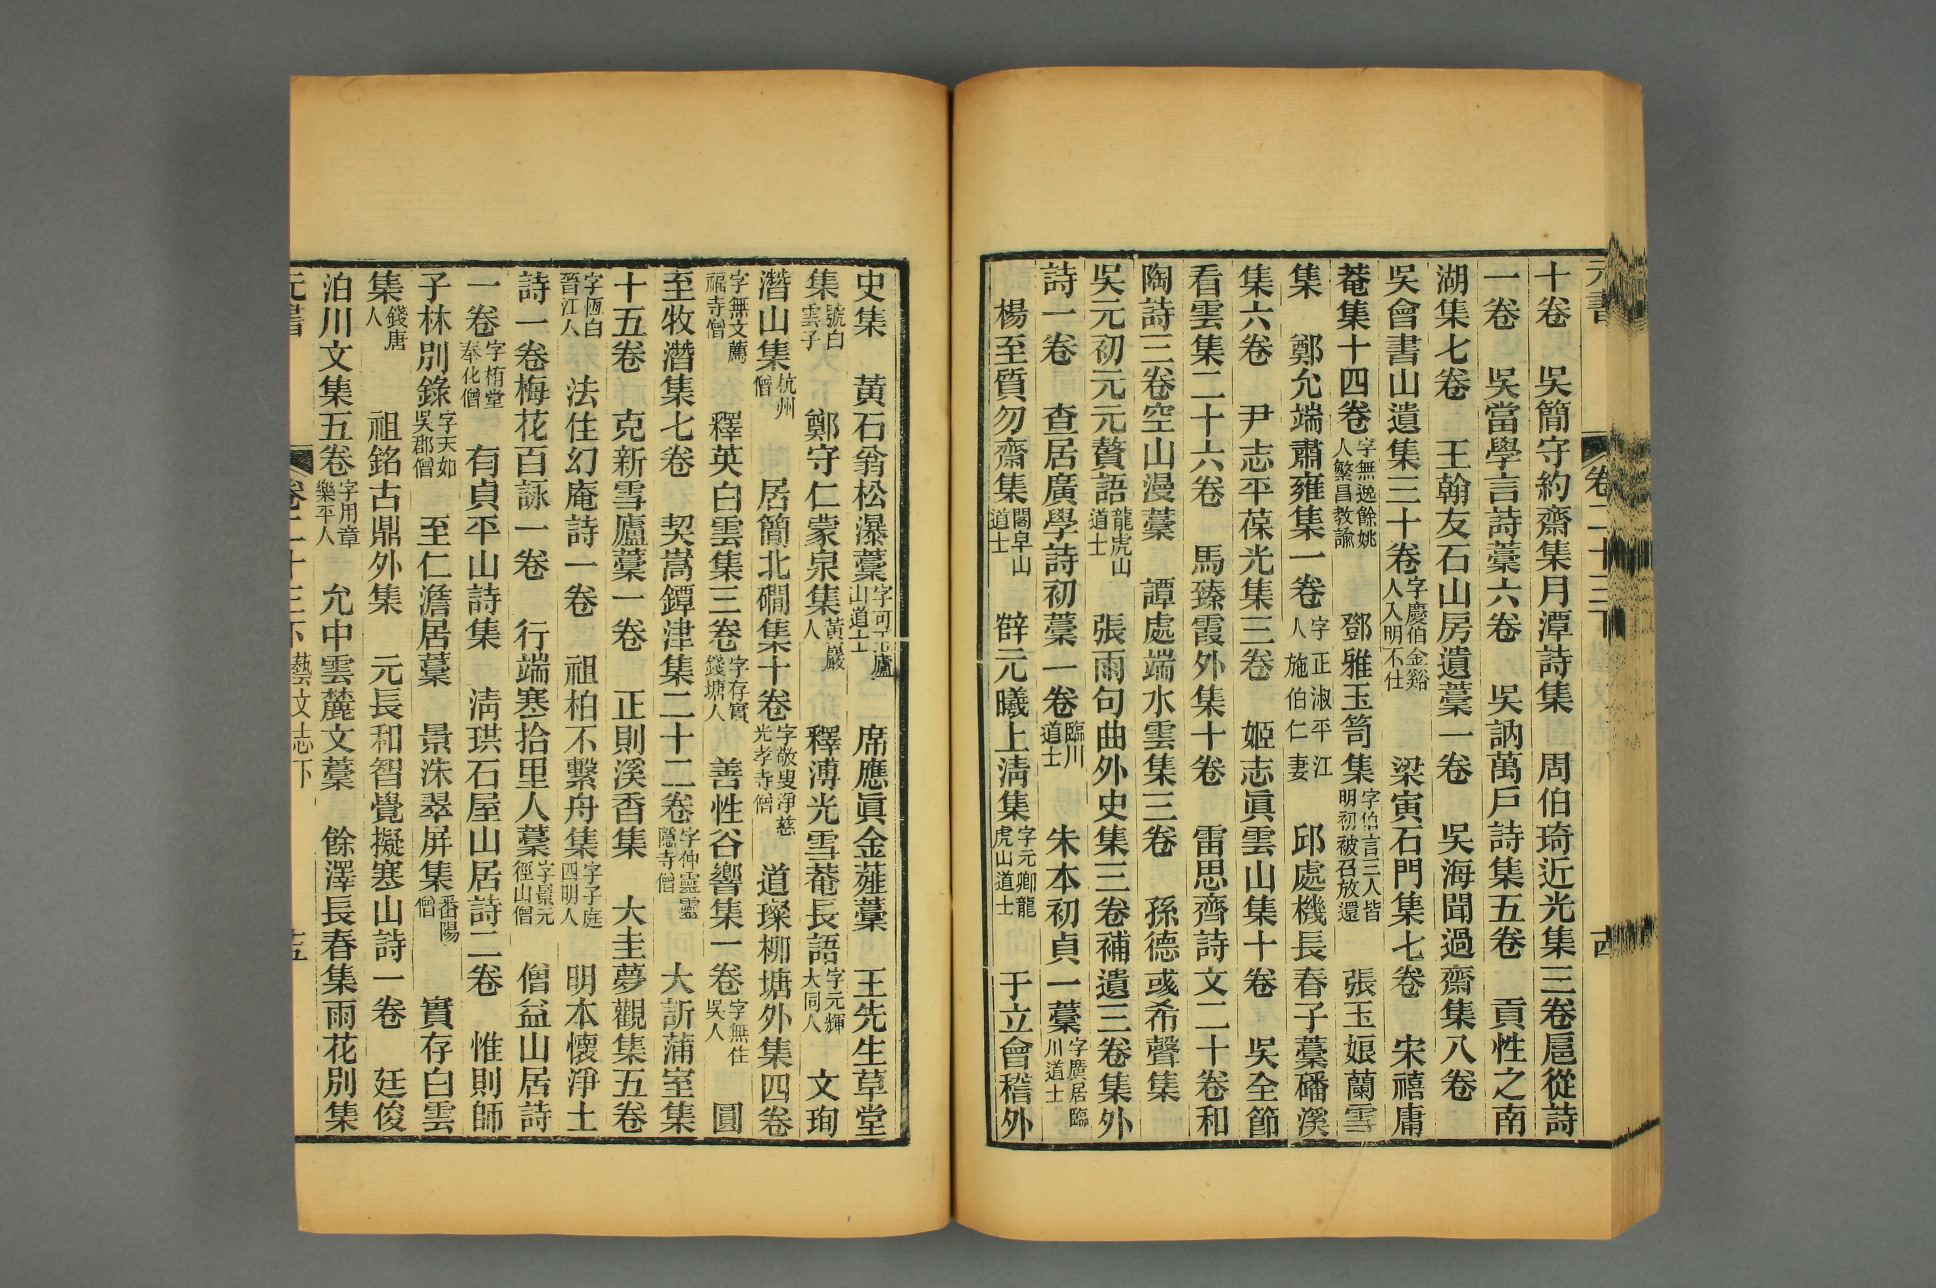 元書 卷二十三下
十卷 吳簡守約齋集月潭詩集 周伯琦近光集三卷扈從詩
一卷 吳當學言詩藁六卷 吳訥萬戶詩集五卷 貢性之南
湖集七卷 王翰友石山房遺藁一卷 吳海聞過齋集八卷
吳會書山遺集三十卷字慶伯金谿人入明不仕 梁寅石門集七卷 宋禧庸
菴集十四卷字無逸餘姚人繁昌教諭 鄧雅玉笥集字伯言三人皆明初被召放還 張玉娘蘭雪
集 鄭允端肅雍集一卷字正淑平江人施伯仁妻 邱處機長春子藁磻溪
集六卷 尹志平葆光集三卷 姬志眞雲山集十卷 吳全節
看雲集二十六卷 馬臻霞外集十卷 雷思齊詩文二十卷和
陶詩三卷空山漫藁 譚處端水雲集三卷 孫德彧希聲集
吳元初元元贅語龍虎山道士 張雨句曲外史集三卷補遺三卷集外
詩一卷 查居廣學詩初藁一卷臨川道士 朱本初貞一藁字廣居臨川道士
楊至質勿齋集閣皁山道士 薛元曦上淸集字元卿龍虎山道士 于立會稽外
史集 黃石翁松瀑藁字可玉廬山道士 席應眞金薤藁 王先生草堂
集號白雲子 鄭守仁蒙泉集黃巖人 釋溥光雪菴長語字元輝大同人 文珦
潛山集杭州僧 居簡北磵集十卷字敬叟淨慈光孝寺僧 道璨柳塘外集四卷
字無文薦福寺僧 釋英白雲集三卷字存實錢塘人 善性谷響集一卷字無住吳人 圓
至牧潛集七卷 契嵩鐔津集二十二卷字仲靈靈隱寺僧 大訢蒲室集
十五卷 克新雪廬藁一卷 正則溪香集 大圭夢觀集五卷
字恆白晉江人 法住幻庵詩一卷 祖柏不繫舟集字子庭四明人 明本懷淨土
詩一卷梅花百詠一卷 行端寒拾里人藁字景元徑山僧 僧益山居詩
一卷字栯堂奉化僧 有貞平山詩集 淸珙石屋山居詩二卷 惟則師
子林別錄字天如吳郡僧 至仁澹居藁 景洙翠屏集番陽僧 實存白雲
集錢唐人 祖銘古鼎外集 元長和智覺擬寒山詩一卷 廷俊
泊川文集五卷字用章樂平人 允中雲麓文藁 餘澤長春集雨花別集
元書 卷二十三下 藝文志下